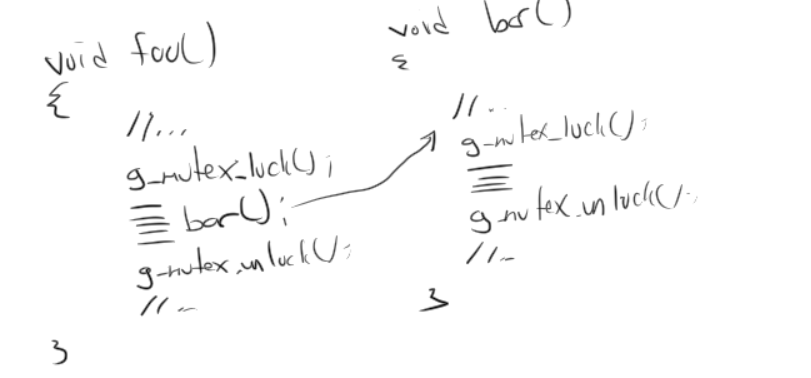 void foo()
{
//...
g_mutex_lock();
bar();
g_mutex_unlock();
//...
}
void bar()
{
//...
g_mutex_lock();
g_mutex_unlock();
//...
}